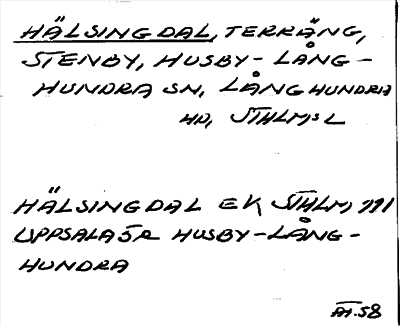 HÄLSINGDAL, TERRÄNG,
STENBY, HUSBY-LÅNG-
HUNDRA SN, LÅNGHUNDRA
HD, STHLM:S L
HÄLSINGDAL EK STHLM 111
UPPSALA 5R HUSBY-LÅNG-
HUNDRA
58